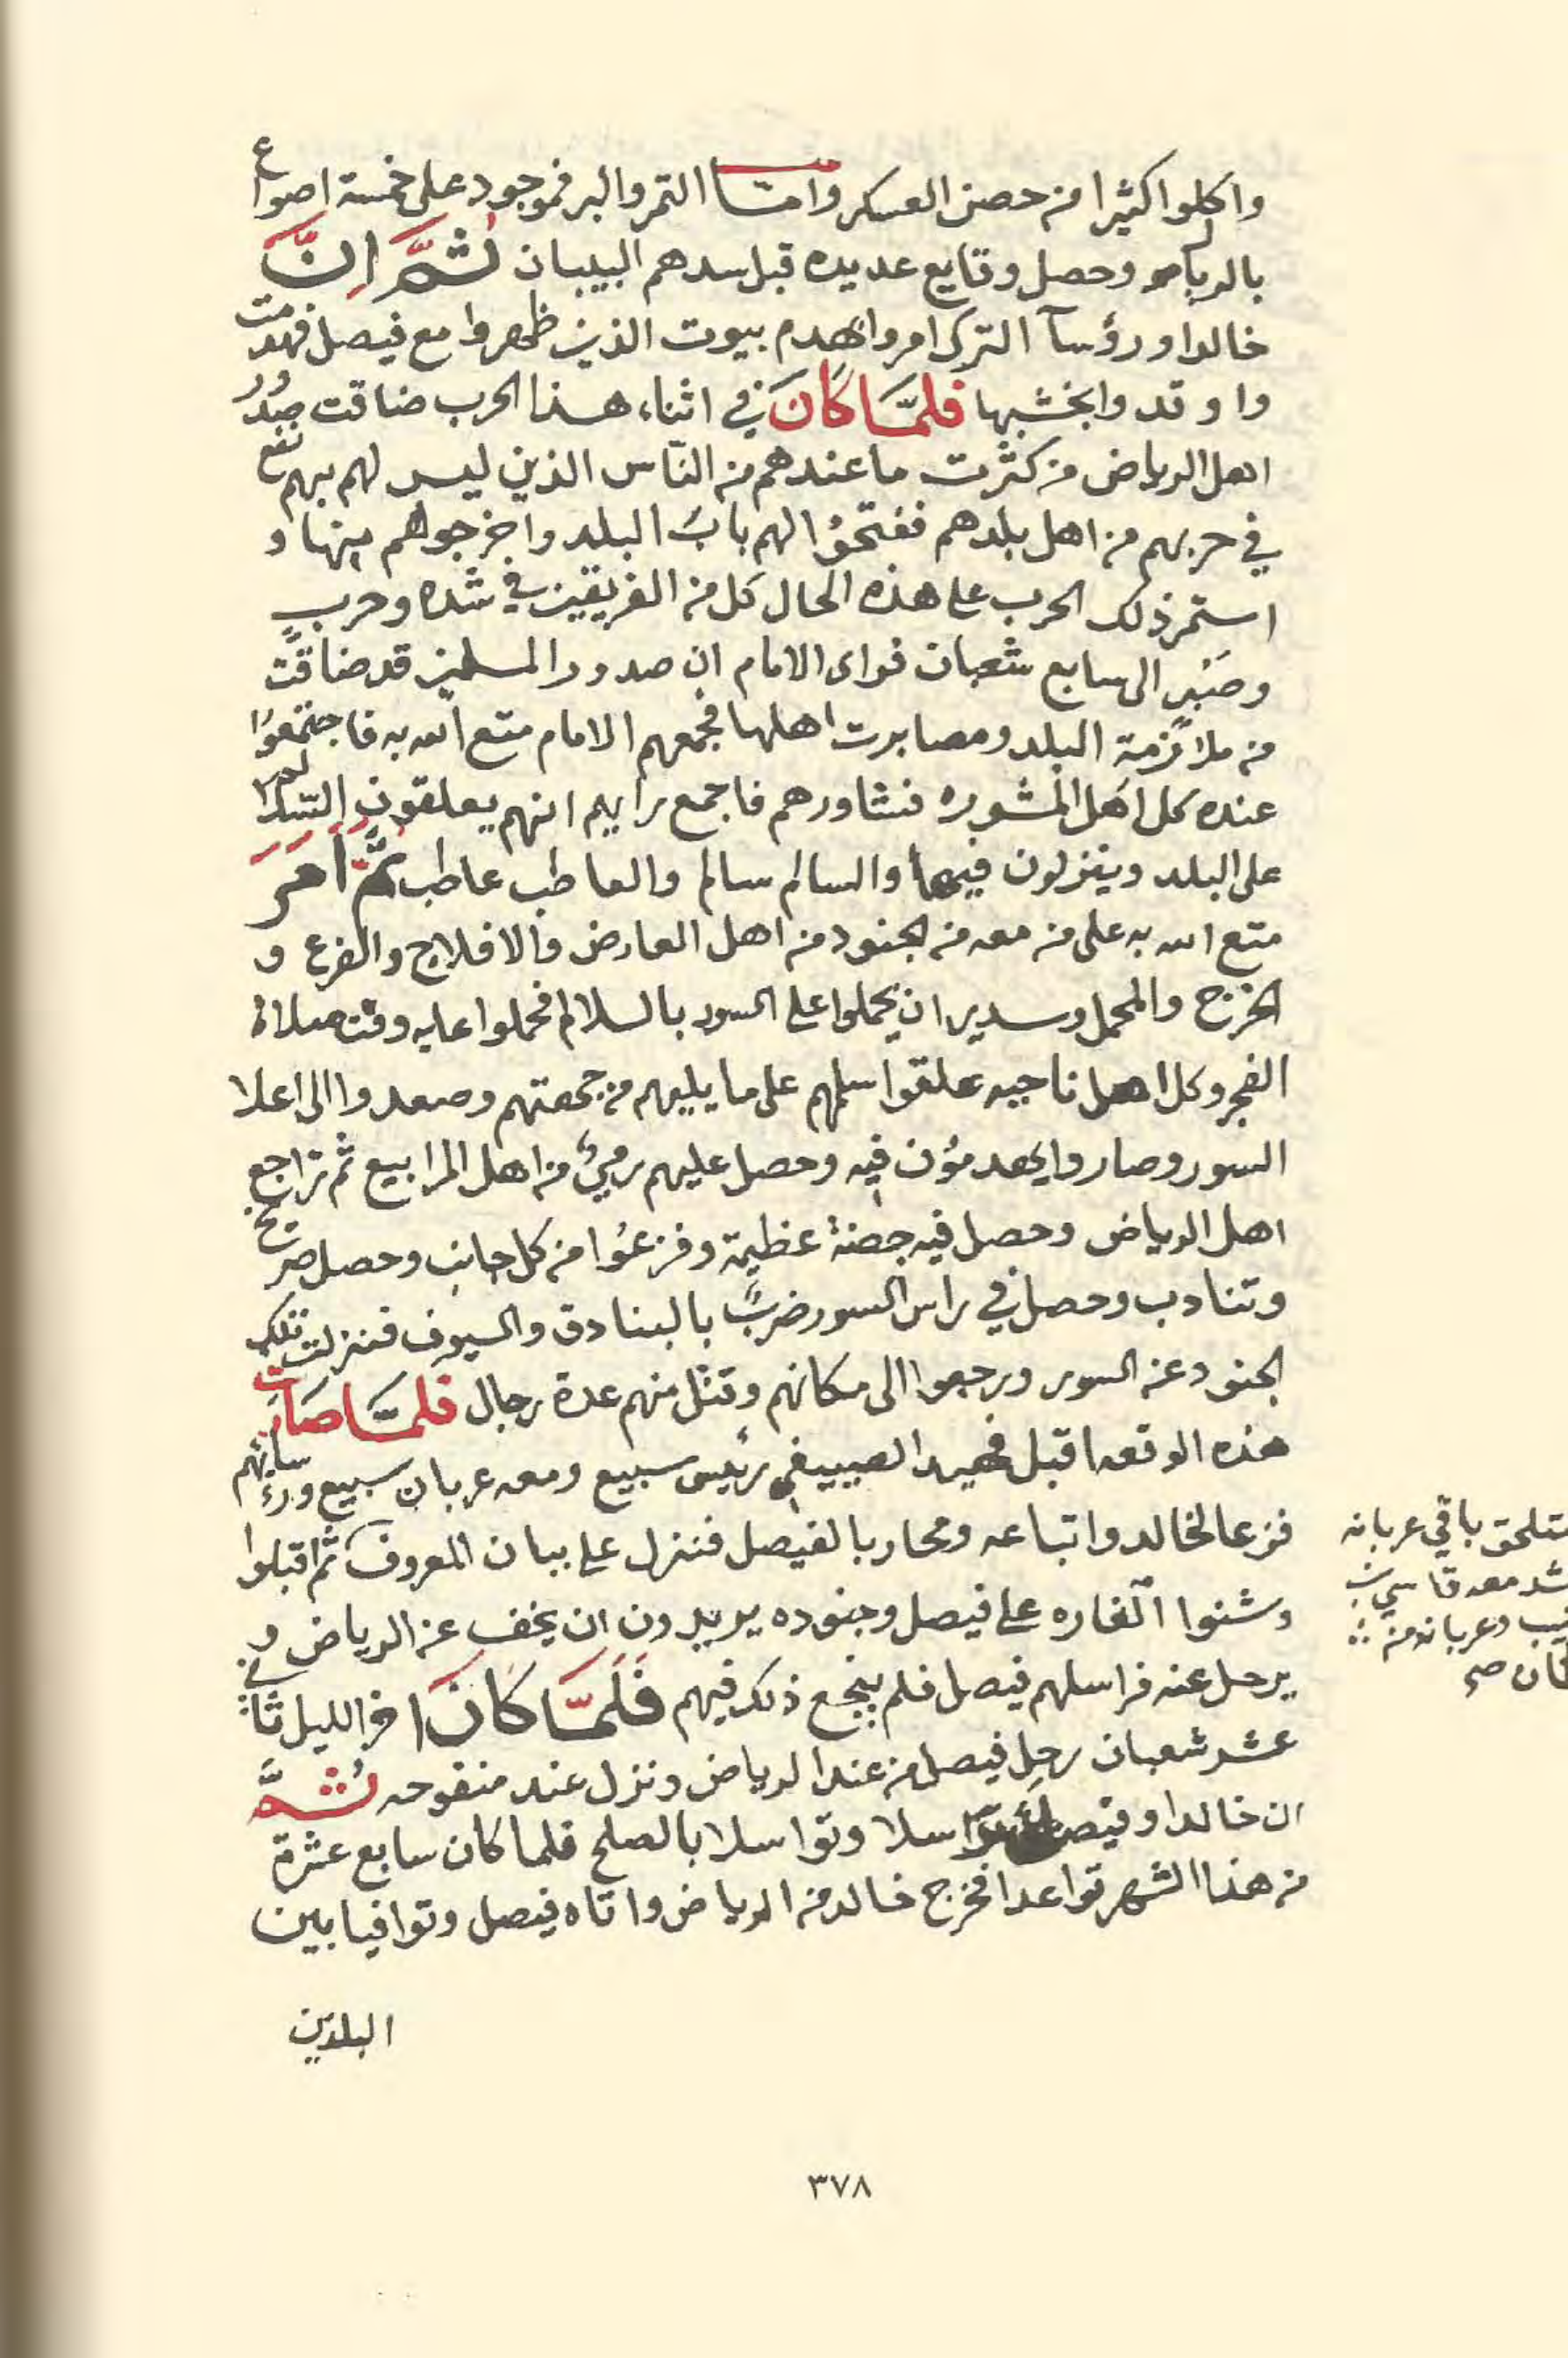 واكلوا كثيرا من حصن العسكر وامّا التمر والبر فموجود على خمسة اصواع
بالريال وحصل وقايع عديده قبل سدهم البيبان ثُمَّ اِنَّ
خالدا ورؤسآ الترك امروا بهدم بيوت الذين ظهروا مع فيصل فهدمت
واوقدوا بخشبها فلمَّا كَانَ في اثناء هذا الحرب ضاقت صدور
اهل الرياض من كثرت ما عندهم من النآس الذين ليس لهم بهم نفع
في حربهم من اهل بلدهم ففتحوُا لهم بابُ البلد واخرجوهم منها و
استمر ذلك الحرب على هذه الحال كل من الفريقين في شده وحربٍ
وصَبْرٍ الى سابع شعبان فراى الامام ان صدور المسلمين قد ضاقت
من ملازمة البلد ومصابرت اهلها فجمعهم الامام متع الله به فاجتمعوُا
عنده كل اهل المشوره فشاورهم فاجمع رايهم انهم يعلقون السّلالم
على البلد وينزلون فيها والسالم سالم والعاطب عاطب ثُمَّ أَمَرَ
متع الله به على من معه من الجنود من اهل العارض والافلاج والفرع و
الخرج والمحمل وسدير ان يحملوا على السور بالسلالم فحملوا عليه وقت صلاة
الفجر وكل اهل ناحيه علقوا سلمهم على ما يليهم من جمعتهم وصعدوا الى اعلا
السور وصاروا يهدمؤن فيه وحصل عليهم رميٌ من اهل المرابيع ثم تراجع
اهل الرياض وحصل فيه جضة عظيمة وفزعوُا من كل جانب وحصل صريخ
وتنادب وحصل في راس السور ضربٌ بالبنادق والسيوف فنزلت تلك
الجنود عن السور ورجعوا الى مكانهم وقتل منهم عدة رجال فلمَّا صَارَت
هذه الوقعه اقبل فهيد الصييفي رئيس سبيع ومعه عربان سبيع ورؤسائهم
فزعا لخالد واتباعه ومحاربا لفيصل فنزل على بنبان المعروف ثم اقبلوا
وشنوا الغاره على فيصل وجنوده يريدون ان يخف عن الرياض و
يرحل عنه فراسلهم فيصل فلم ينجع ذلك فيهم فَلَمَّا كَانَ اخر الليل ثاني
عشر شعبان رحل فيصل من عند الرياض ونزل عند منفوحه ثُمَّ
ان خالدا وفيصل تراسلا وتواسلا بالصلح فلما كان سابع عشرة
من هذا الشهر تواعدا فخرج خالد من الرياض واتاه فيصل وتوافيا بين
البلدين
باقي عربانه
معه قاسي بن
وعربانه من
٣٧٨